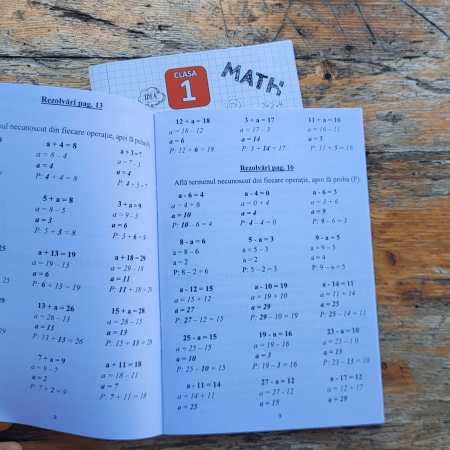 CLASA
1
MATH
IDEA
Rezolvări pag. 13
nul necunoscut din fiecare operație, apoi fă proba (P)
a + 4 = 8
a = 8 – 4
a = 4
P: 4 + 4 = 8
a + 3 = 7
a = 7 – 3
a = 4
P: 4 + 3 = 7
5 + a = 8
a = 8 – 5
a = 3
P: 5 + 3 = 8
3 + a = 9
a = 9 – 3
a = 6
P: 3 + 6 = 9
a + 13 = 19
a = 19 – 13
a = 6
P: 6 + 13 = 19
a + 18 = 29
a = 29 – 18
a = 11
P: 11 + 18 = 29
13 + a = 26
a = 26 – 13
a = 13
P: 13 + 13 = 26
15 + a = 28
a = 28 – 15
a = 13
P: 15 + 13 = 28
7 + a = 9
a = 9 – 7
a = 2
P: 7 + 2 = 9
a + 11 = 18
a = 18 – 11
a = 7
P: 7 + 11 = 18
8
12 + a = 18
a = 18 – 12
a = 6
P: 12 + 6 = 18
3 + a = 17
a = 17 – 3
a = 14
P: 3 + 14 = 17
11 + a = 16
a = 16 – 11
a = 5
P: 11 + 5 = 16
Rezolvări pag. 16
Află termenul necunoscut din fiecare operație, apoi fă proba (P):
a - 6 = 4
a = 4 + 6
a = 10
P: 10 – 6 = 4
a - 4 = 0
a = 0 + 4
a = 4
P: 4 – 4 = 0
a - 6 = 3
a = 3 + 6
a = 9
P: 9 – 6 = 3
8 - a = 6
a = 8 – 6
a = 2
P: 8 – 2 = 6
5 - a = 3
a = 5 – 3
a = 2
P: 5 – 2 = 3
9 - a = 5
a = 9 – 5
a = 4
P: 9 – 4 = 5
a - 12 = 15
a = 15 + 12
a = 27
P: 27 – 12 = 15
a - 10 = 19
a = 19 + 10
a = 29
P: 29 – 10 = 19
a - 14 = 11
a = 11 + 14
a = 25
P: 25 – 14 = 11
25 - a = 15
a = 25 – 15
a = 10
P: 25 – 10 = 15
19 - a = 16
a = 19 – 16
a = 3
P: 19 – 3 = 16
23 - a = 10
a = 23 – 10
a = 13
P: 23 – 13 = 10
a - 11 = 14
a = 14 + 11
a = 25
27 - a = 12
a = 27 - 12
a = 15
a - 17 = 12
a = 12 + 17
a = 29
9